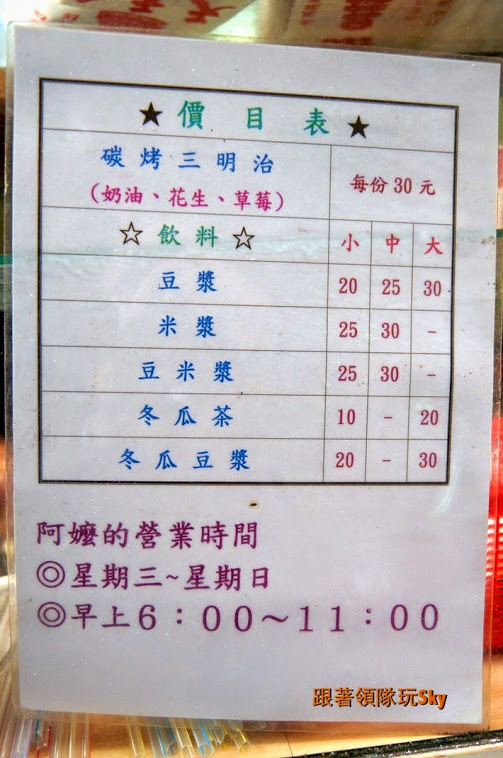 ★ 價目表 ★
碳烤三明治
(奶油、花生、草莓) 每份30元
☆ 飲料 ☆ 小 中 大
豆漿 20 25 30
米漿 25 30 -
豆米漿 25 30 -
冬瓜茶 10 - 20
冬瓜豆漿 20 - 30
阿嬤的營業時間
◎星期三~星期日
◎早上6：00～11：00
跟著領隊玩Sky